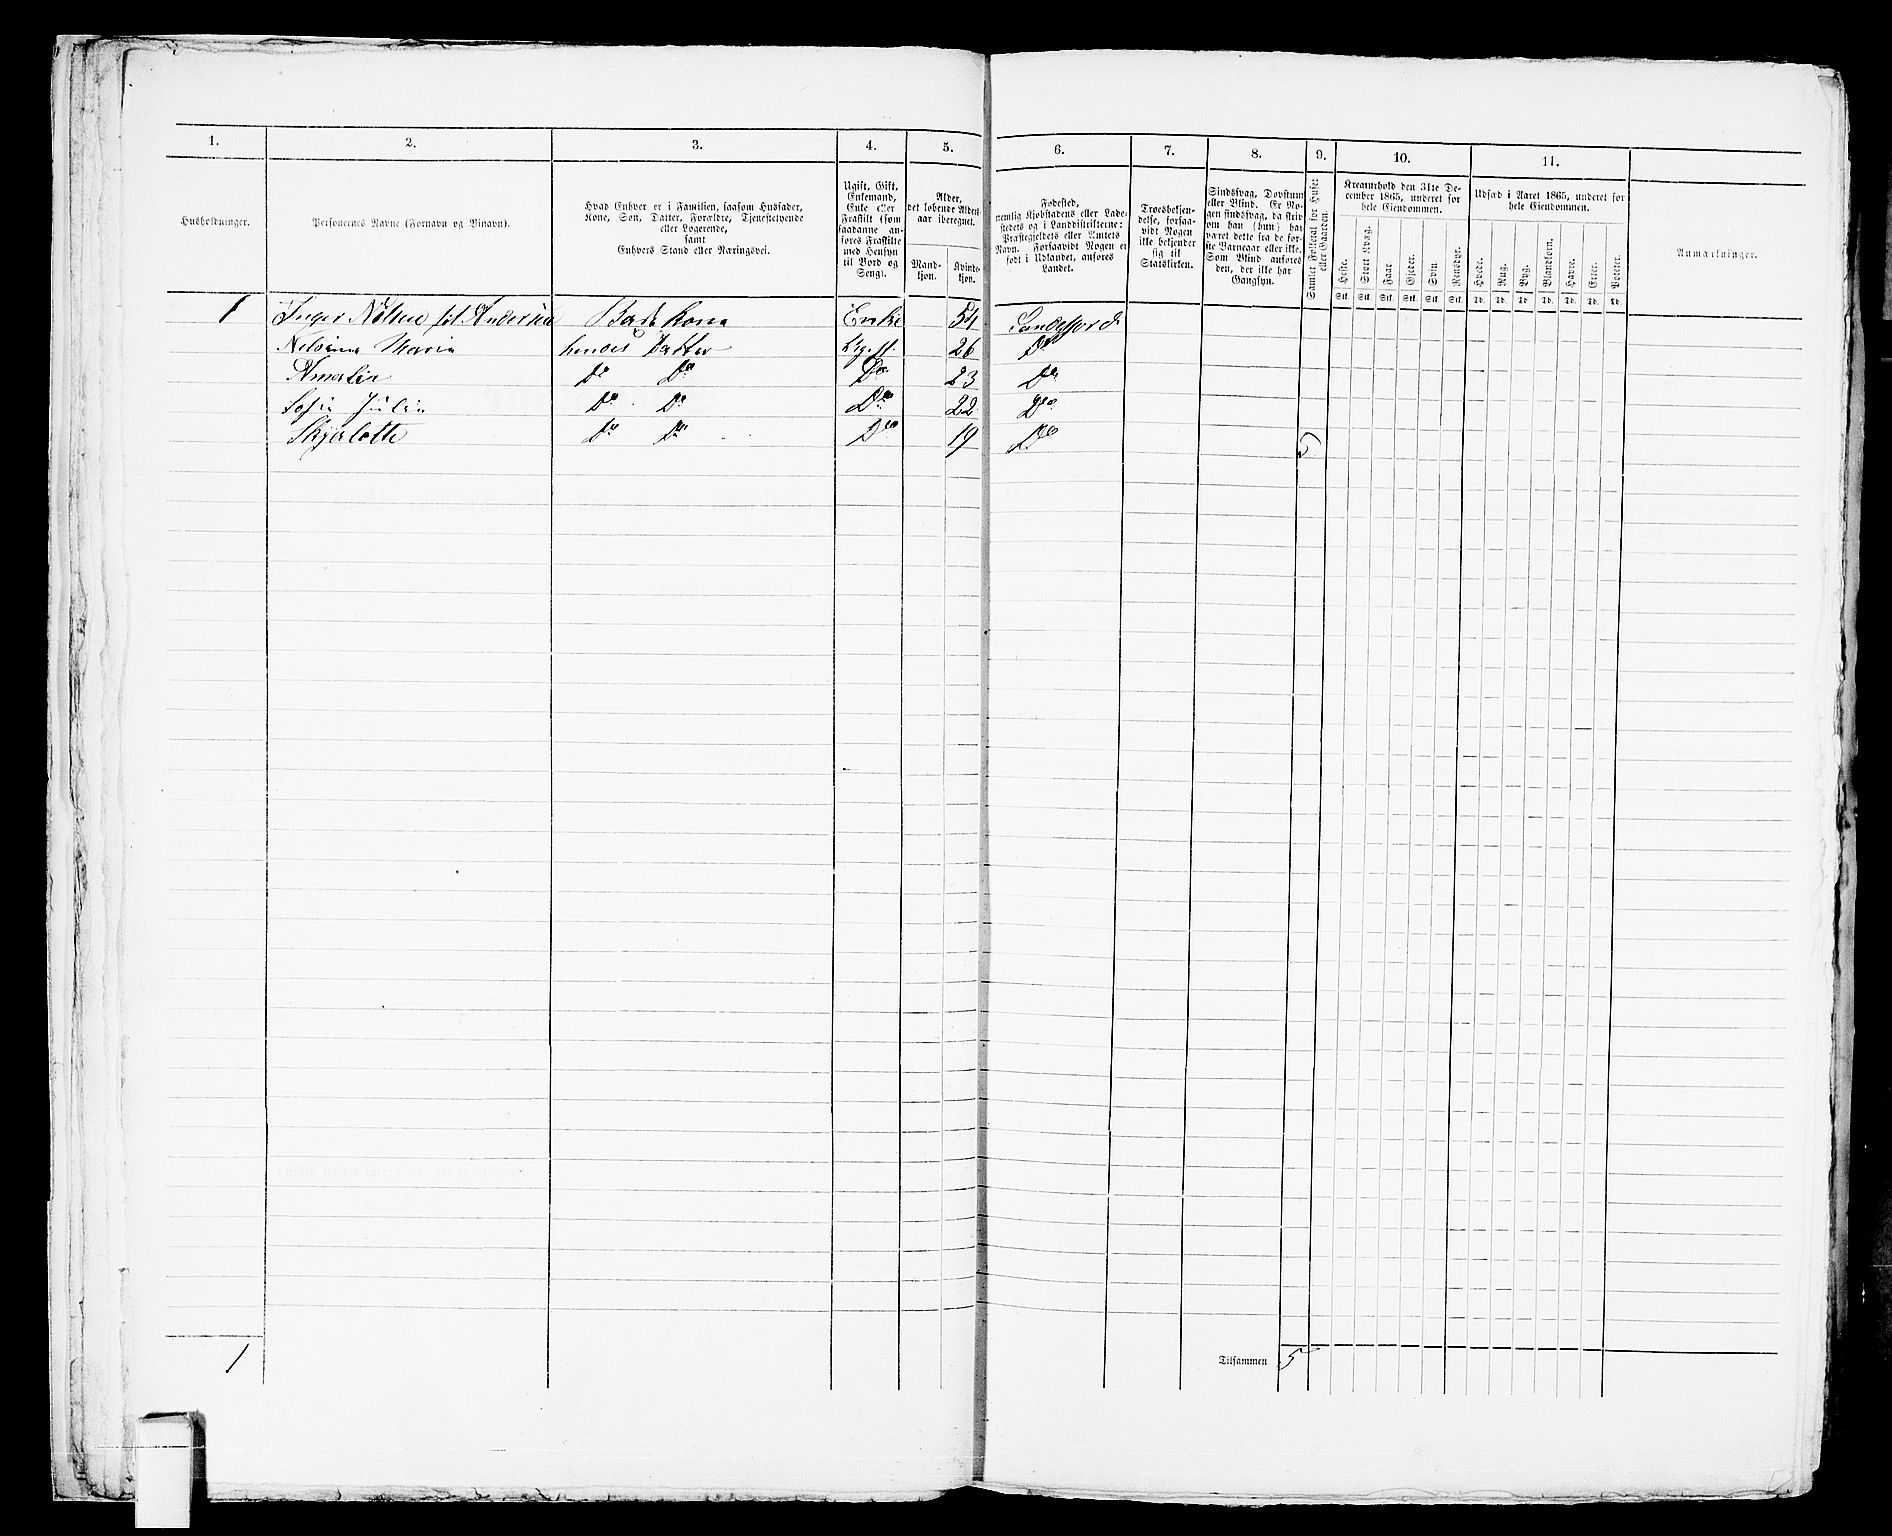 1. 2. 3. 4. 5. 6. 7. 8. 9. 10. 11.
Husholdninger.
Personernes Navne (Fornavn og Tilnavn).
Hvad Enhver er i Familien, saasom Husfader,
Kone, Søn, Datter, Forældre, Tjenestetyende
eller Logerende,
samt
Enhvers Stand eller Næringsvei.
Ugift, Gift,
Enkemand,
Enke eller
Fraskilt (som
saadanne an-
føres Fraskilte
med Hensyn
til Bord og
Seng).
Alder,
det løbende Alders-
aar iberegnet.
Mand-
kjøn.
Kvinde-
kjøn.
Fødested,
nemlig Kjøbstadens eller Lade-
stedets og i Landdistrikterne:
Præstegjeldets eller Amtets
Navn. Forsaavidt Nogen er
født i Udlandet, anføres
Landet.
Troesbekjen-
delse, forsaa-
vidt Nogen
ikke bekjender
sig til
Statskirken.
Sindssvag, Døvstum
eller Blind. Er No-
gen sindssvag, da skriv
om han (hun) har
været dette fra de før-
ste Barneaar eller ikke.
Som Blind anføres
den, der ikke har
Gangsyn.
Samlet Folketal for Huset
eller Gaarden.
Kreaturhold den 31te De-
cember 1865, underet for
hele Eiendommen.
Heste. Stort Kvæg. Faar. Gjeder. Svin Rensdyr.
Stk. Stk. Stk. Stk. Stk. Stk.
Udsæd i Aaret 1865, underet for
hele Eiendommen.
Hvede. Rug. Byg. Blandkorn. Havre. Erter. Poteter.
Td. Td. Td. Td. Td. Td. Td.
Anmærkninger.
1 Inger Nilsen Andersen Enke 54 Sandefjord
Maria hendes Datter Ugift 26 Do
Amalie Do Do Do 23 Do
Sofie Julie Do Do Do 22 Do
Skjerlotte Do Do Do 19 Do 5
1 Tilsammen 5